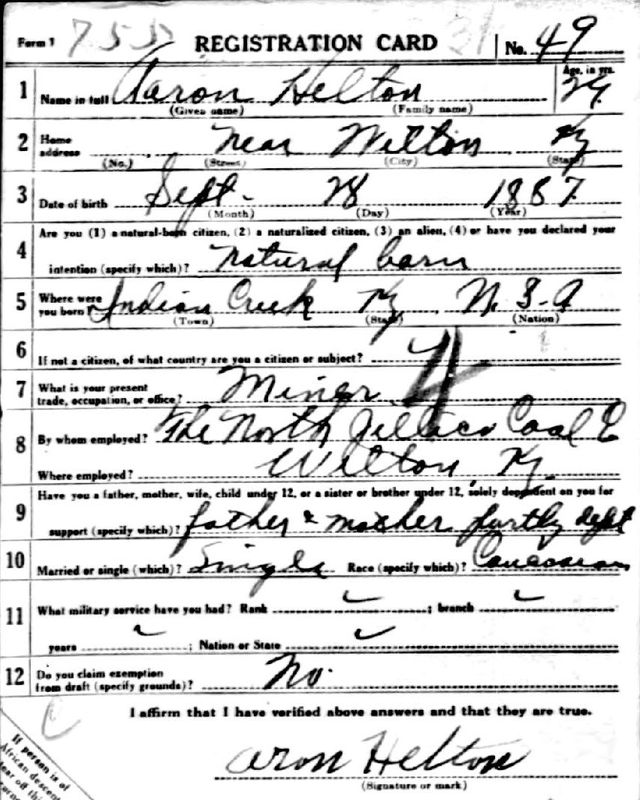 Form 1 7557 REGISTRATION CARD 31 No. 49
1 Name in full Aaron Helton Age, in yrs. 29
(Given name) (Family name)
2 Home address near Wilton Ky
(No.) (Street) (City) (State)
3 Date of birth Sept. 28 1887
(Month) (Day) (Year)
4 Are you (1) a natural-born citizen, (2) a naturalized citizen, (3) an alien, (4) or have you declared your
intention (specify which)? natural born
5 Where were you born? Indian Creek Ky U.S.A
(Town) (State) (Nation)
6 If not a citizen, of what country are you a citizen or subject?
7 What is your present trade, occupation, or office? Miner 4
8 By whom employed? The North Jellico Coal C
Where employed? Wilton, Ky.
9 Have you a father, mother, wife, child under 12, or a sister or brother under 12, solely dependent on you for
support (specify which)? father & mother partly dept
10 Married or single (which)? Single Race (specify which)? Caucasian
11 What military service have you had? Rank ; branch
years ; Nation or State
12 Do you claim exemption from draft (specify grounds)? No.
I affirm that I have verified above answers and that they are true.
aron Helton
(Signature or mark)
If person is of
African descent
tear off this
corner